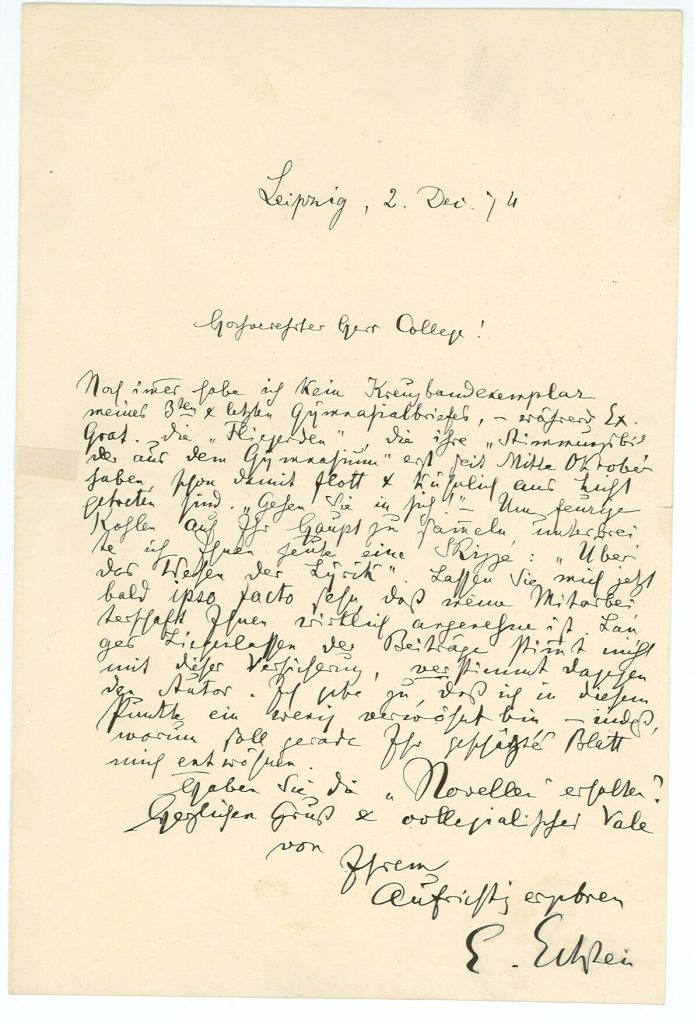 Leipzig, 2. Dec. 74
Hochverehrter Herr College!
Noch im̅er habe ich kein Kreuzbandexemplar
meines 3ten & letzten Gymnasialbriefes, – während Ex.
Grat. die „Fliegenden“, die ihre „Stimmungsbil
der aus dem Gymnasium“ erst seit Mitte Oktober
haben, schon damit flott & aus Licht
getreten sind. „Gehen Sie in sich!“ – Um feurige
Kohlen auf Ihr Haupt zu sam̅eln, unterbrei
te ich Ihnen heute eine Skizze: „Über
das Wesen der Lyrik“. Lassen Sie mich jetzt
bald ipso facto sehn, daß meine Mitarbei
terschaft Ihnen wirklich angenehm ist. Lan
ges Liegenlassen der Beiträge stim̅t nicht
mit dieser Versicherung, verstimmt dagegen
den Autor. Ich gebe zu, daß ich in diesem
Punkte ein wenig verwöhnt bin – indeß,
warum soll gerade Ihr geschätztes Blatt
mich entwöhnen.
Haben Sie die „Novellen“ erhalten?
Herzlichen Gruß & collegialisches Vale
von Ihrem
Aufrichtig ergebnen
E. Eckstein